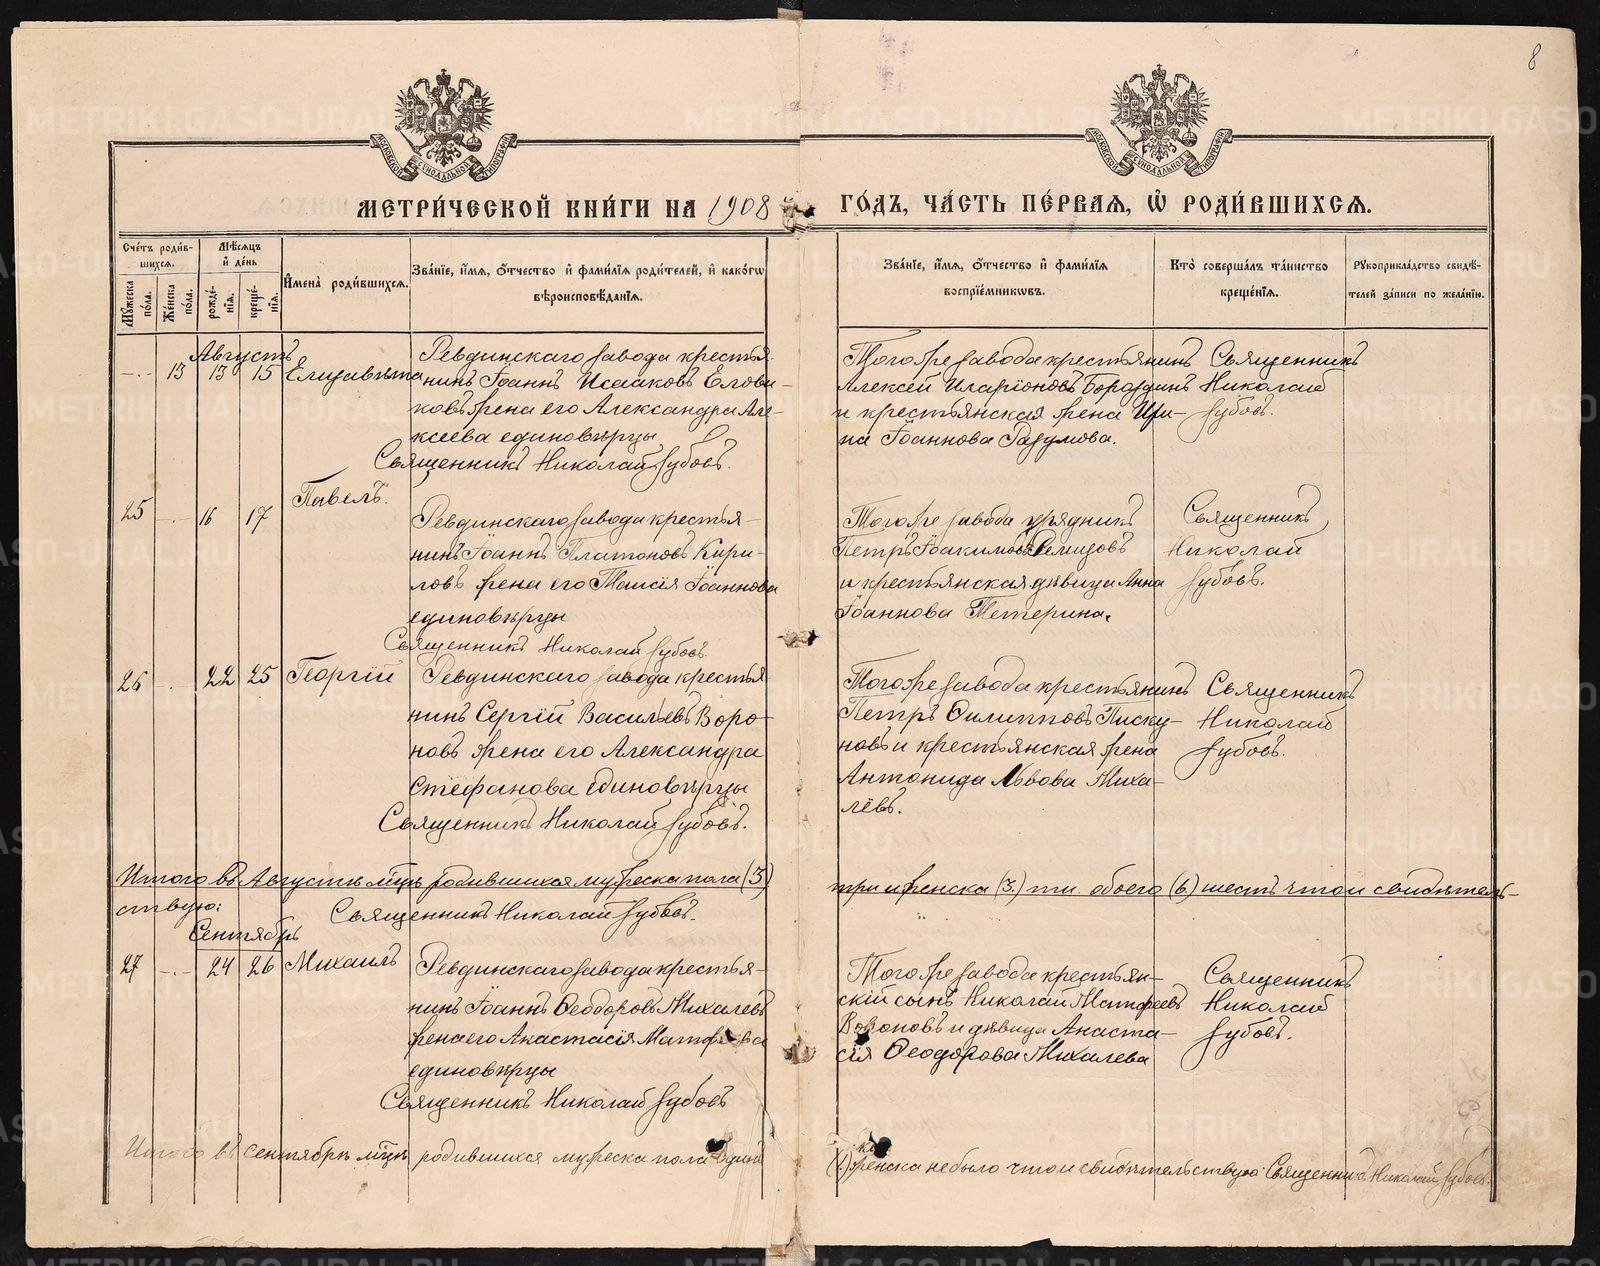 8
МОСКОВСКОЙ СѴНОДАЛЬНОЙ ТИПОГРАФІИ
МОСКОВСКОЙ СѴНОДАЛЬНОЙ ТИПОГРАФІИ
МЕТРИ́ЧЕСКОЙ КНИ́ГИ НА 1908 ГО́ДЪ, ЧА́СТЬ ПЕ́РВАЯ, Ѡ҆ РОДИ́ВШИХСЯ.
Сче́тъ роди́в-
шихся.
Мꙋжеска по́ла.
Же́нска по́ла.
Мѣ́сяцъ
и҆ де́нь
рожде́-
нїя.
креще́-
нїя.
И҆мена̀ роди́вшихся.
Зва́нїе, и҆́мя, ѻ҆́тчество и҆ фами́лїя роди́телей, и҆ како́гѡ
вѣроисповѣ́данїя.
Зва́нїе, и҆́мя, ѻ҆́тчество и҆ фами́лїя
воспрїе́мникѡвъ.
Кто̀ соверша́лъ та́инство
креще́нїя.
Рꙋкоприкла́дство свидѣ́-
телей за́писи по жела́нїю.
Августъ
-.- 13 13 15 Елизавѣта
Ревдинскаго завода крестья-
нинъ Іоаннъ Исааковъ Елови-
ковъ жена его Александра Але-
ксеева единовѣрцы
Священникъ Николай Зубовъ.
Того же завода крестьянинъ
Алексѣй Иларіоновъ Бороздинъ
и крестьянская жена Ири-
на Іоаннова Разумова.
Священникъ
Николай
Зубовъ.
25 -.- 16 17 Павелъ.
Ревдинскаго завода крестья-
нинъ Іоаннъ Платоновъ Кири-
ловъ жена его Таисія Іоаннова
единовѣрцы
Священникъ Николай Зубовъ
Того же завода урядникъ
Петръ Іоакимовъ
и крестьянская дѣвица Анна
Іоаннова Тетерина.
Священникъ
Николай
Зубовъ.
26 -.- 22 25 Георгій
Ревдинскаго завода крестья-
нинъ Сергій Васильевъ Воро-
новъ жена его Александра
Стефанова единовѣрцы
Священникъ Николай Зубовъ.
Того же завода крестьянинъ
Петръ Филипповъ Писку-
новъ и крестьянская жена
Антонида Львова Миха-
лёвъ.
Священникъ
Николай
Зубовъ.
Итого въ Августѣ мѣцѣ родившихся мужеска пола (3) три и женска (3.) три. обоего (6) шесть что и свидѣтель-
ствую: Священникъ Николай Зубовъ.
Сентябрь
27 -.- 24 26 Михаилъ
Ревдинскаго завода крестья-
нинъ Іоаннъ Феодоровъ Михалевъ
жена его Анастасія Матфеева
единовѣрцы
Священникъ Николай Зубовъ
Того же завода крестьян-
скій сынъ Николай Матфеевъ
Вороновъ и дѣвица Анаста-
сія Феодорова Михалева
Священникъ
Николай
Зубовъ.
Итого въ сентябрѣ мѣцѣ родившихся мужеска пола одинъ (1.) женска не было что и свидѣтельствую Священникъ Николай Зубовъ.
METRIKI.GASO-URAL.RU